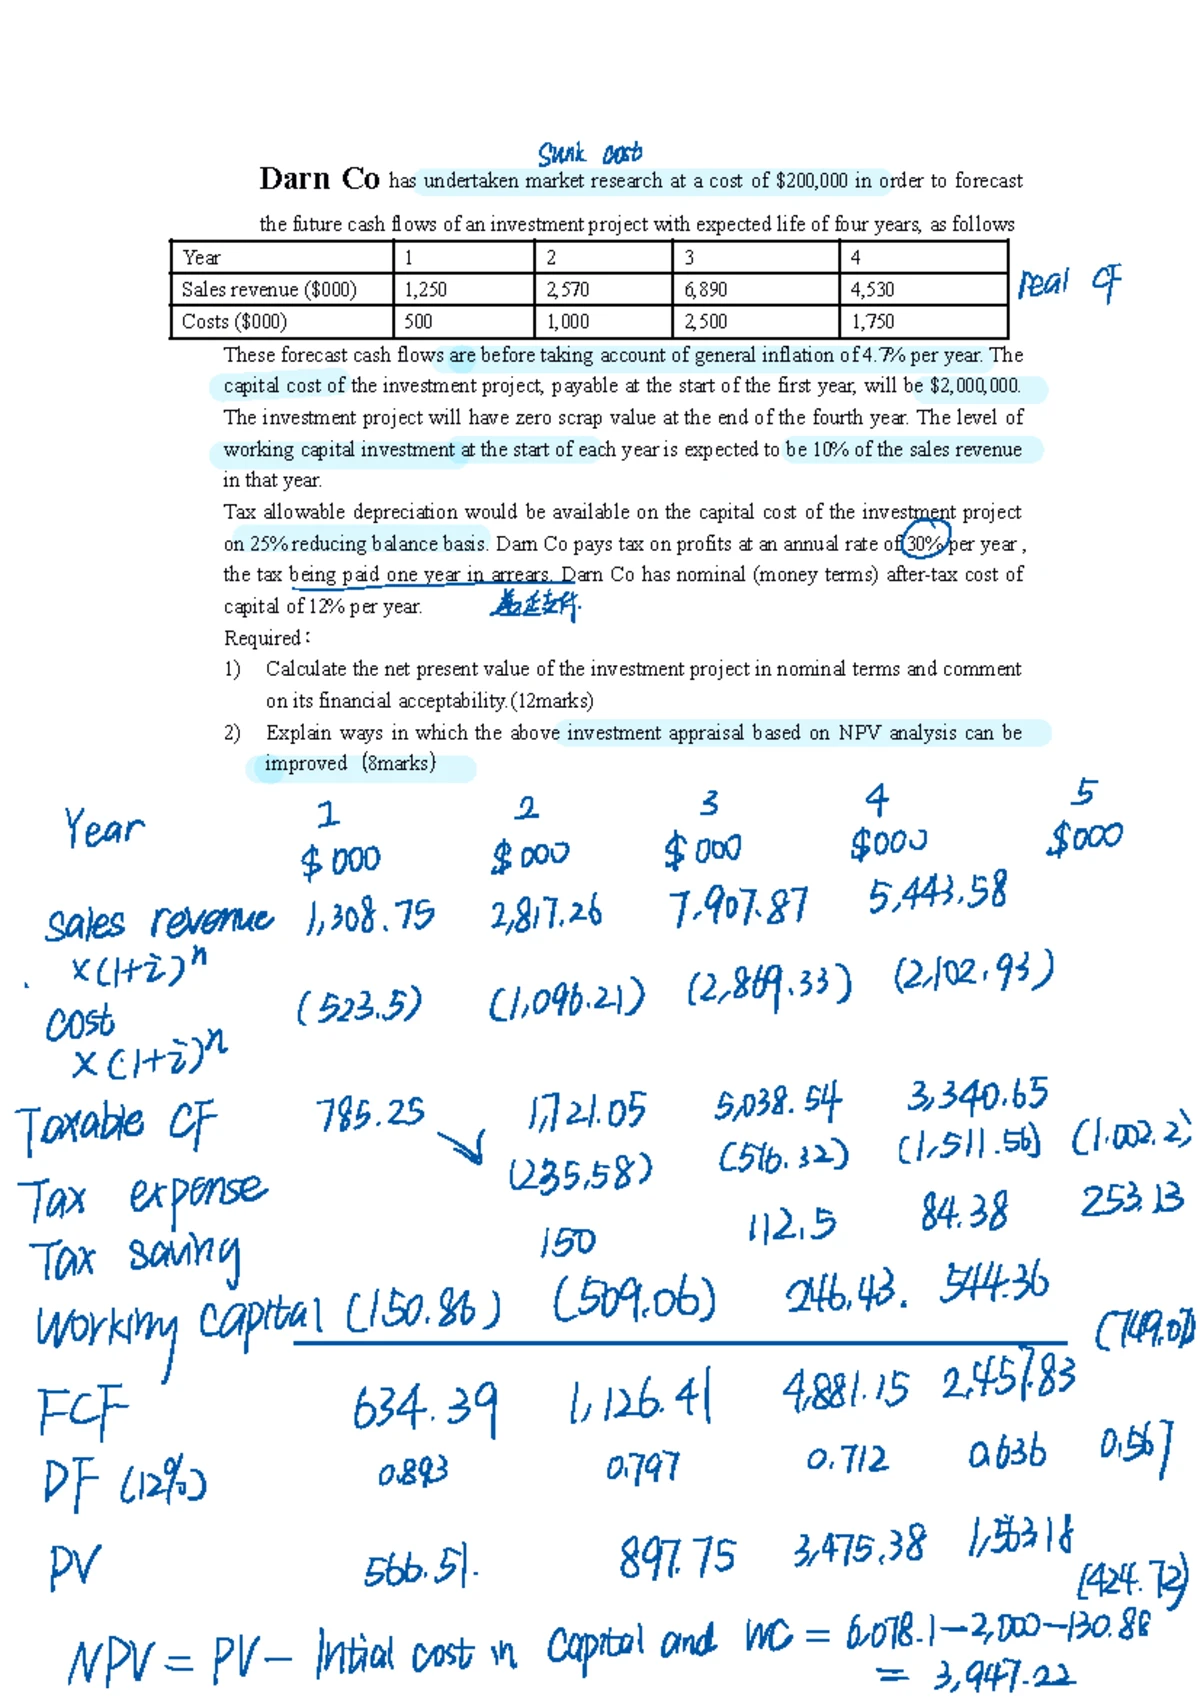 Sunk cost
Darn Co has undertaken market research at a cost of $200,000 in order to forecast
the future cash flows of an investment project with expected life of four years, as follows
Year 1 2 3 4
Sales revenue ($000) 1,250 2,570 6,890 4,530
real CF
Costs ($000) 500 1,000 2,500 1,750
These forecast cash flows are before taking account of general inflation of 4.7% per year. The
capital cost of the investment project, payable at the start of the first year, will be $2,000,000.
The investment project will have zero scrap value at the end of the fourth year. The level of
working capital investment at the start of each year is expected to be 10% of the sales revenue
in that year.
Tax allowable depreciation would be available on the capital cost of the investment project
on 25% reducing balance basis. Darn Co pays tax on profits at an annual rate of 30% per year ,
the tax being paid one year in arrears. Darn Co has nominal (money terms) after-tax cost of
capital of 12% per year.
Required:
1) Calculate the net present value of the investment project in nominal terms and comment
on its financial acceptability.(12marks)
2) Explain ways in which the above investment appraisal based on NPV analysis can be
improved (8marks)
Year 1 2 3 4 5
$000 $000 $000 $000 $000
Sales revenue 1,308.75 2,817.26 7,907.87 5,443.58
×(1+i)ⁿ
cost (523.5) (1,096.21) (2,869.33) (2,102.93)
×(1+i)ⁿ
Taxable CF 785.25 1,721.05 5,038.54 3,340.65
Tax expense (235.58) (516.32) (1,511.56) (1,002.2)
Tax saving 150 112.5 84.38 253.13
Working capital (150.86) (509.06) 246.43. 544.36
(749.07)
FCF 634.39 1,126.41 4,881.15 2,457.83
DF (12%) 0.893 0.797 0.712 0.636 0.567
PV 566.51. 897.75 3,475.38 1,563.18
(424.72)
NPV = PV - Intial cost in capital and WC = 6,078.1-2,000-130.88
= 3,947.22